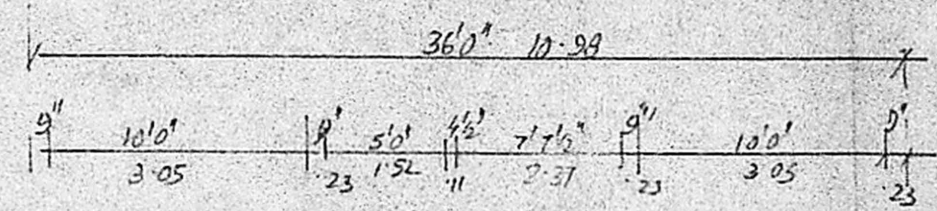 36'0" 10.98
9" 10'0" 9" 5'0" 4½" 7'7½" 9" 10'0" 9"
3.05 .23 1.52 .11 2.37 .23 3.05 .23